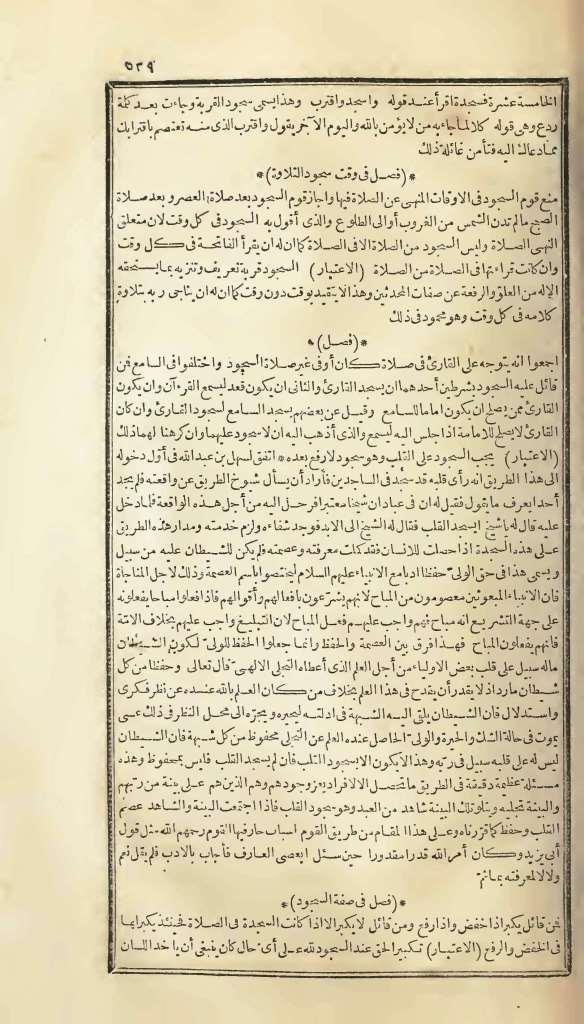 ٥٣٩
الخامسة عشرة فسجدة اقرأ عند قوله واسجد واقترب وهذا يسمى سجود القربة وجاءت بعد كلمة
ردع وهى قوله كلا لما جاء به من لا يؤمن بالله واليوم الآخر يقول واقترب الذى منه تعتصم باقترابك
مما دعاك اليه فتأمن غائلة ذلك
*(فصل فى وقت سجود التلاوة)*
منع قوم السجود فى الاوقات المنهى عن الصلاة فيها واجاز قوم السجود بعد صلاة العصر وبعد صلاة
الصبح ما لم تدن الشمس من الغروب أو الى الطلوع والذى أقول به السجود فى كل وقت لان متعلق
النهى الصلاة وليس السجود من الصلاة الا فى الصلاة كما ان له ان يقرأ الفاتحة فى كل وقت
وان كانت قراءتها فى الصلاة من الصلاة (الاعتبار) السجود قربة تعريف وتنزيه بما يستحقه
الاله من العلو والرفعة عن صفات المحدثين وهذا لا يتقيد بوقت دون وقت كما ان له ان يناجى ربه بتلاوة
كلامه فى كل وقت وهو محمود فى ذلك
*(فصل)*
اجمعوا انه يتوجه على القارئ فى صلاة كان أو فى غير صلاة السجود واختلفوا فى السامع فمن
قائل عليه السجود بشرطين أحدهما ان يسجد القارئ والثانى ان يكون قعد ليسمع القرءآن وان يكون
القارئ ممن يصلح ان يكون اماما للسامع وقيل عن بعضهم يسجد السامع لسجود القارئ وان كان
القارئ لا يصلح للامامة اذا جلس اليه ليسمع والذى أذهب اليه ان لا سجود عليهما وان كرهنا لهما ذلك
(الاعتبار) يجب السجود على القلب وهو سجود لا رفع بعده * اتفق لسهل بن عبد الله فى أول دخوله
الى هذا الطريق انه رأى قلبه قد سجد فى الساجدين فأراد أن يسأل شيوخ الطريق عن واقعته فلم يجد
أحدا يعرف ما يقول فقيل له ان فى عبادان شيخا معتبرا فرحل اليه من أجل هذه الواقعة فلما دخل
عليه قال له يا شيخ أيسجد القلب فقال له الشيخ الى الابد فوجد شفاءه ولزم خدمته ومدار هذه الطريق
على هذه السجدة اذا حصلت للانسان فقد كملت معرفته وعصمته فلم يكن للشيطان عليه من سبيل
ويسمى هذا فى حق الولى حفظا ادبا مع الانبياء عليهم السلام ليختصوا باسم العصمة وذلك لاجل المناجاة
فان الانبياء المبعوثين معصومون من المباح لانهم يشرّعون بأفعالهم وأقوالهم فاذا فعلوا مباحا يفعلونه
على جهة التشريع انه مباح فهم واجب عليهم فعل المباح لان التبليغ واجب عليهم بخلاف الائمة
فانهم يفعلون المباح فهذا فرق بين العصمة والحفظ وانما جعلوا الحفظ للولى لكون الشيطان
ماله سبيل على قلب بعض الاولياء من أجل العلم الذى أعطاه التجلى الالهى قال تعالى وحفظا من كل
شيطان مارد اذ لا يقدر أن يقدح فى هذا العلم بخلاف من كان العلم بالله عنده عن نظر فكرى
واستدلال فان الشيطان يلقى اليه الشبهة فى ادلته ليحيره ويجرّه الى محل النظر فى ذلك عسى
يموت فى حالة الشك والحيرة والولى الحاصل عنده العلم عن التجلى محفوظ من كل شبهة فان الشيطان
ليس له على قلبه سبيل فى ربه وهذا لا يكون الا بسجود القلب فان لم يسجد القلب فليس بمحفوظ وهذه
مسئلة عظيمة دقيقة فى الطريق ما تحصل الا لافراد يعز وجودهم وهم الذين هم على بينة من ربهم
والبينة تجليه ويتلو تلك البينة شاهد من العبد وهو سجود القلب فاذا اجتمعت البينة والشاهد عصم
القلب وحفظ كما قررناه وعلى هذا المقام من طريق القوم اسباب حار فيها القوم رحمهم الله مثل قول
أبى يزيد وكان أمر الله قدرا مقدورا حين سئل ايعصى العارف فأجاب بالادب فلم يقل نعم
ولا لا لمعرفته بما تم
*(فصل فى صفة السجود)*
فمن قائل يكبر اذا خفض واذا رفع ومن قائل لا يكبر الا اذا كانت السجدة فى الصلاة فحينئذ يكبر لها
فى الخفض والرفع (الاعتبار) تكبير الحق عند السجود لله على أى حال كان ينبغى أن يأخذ اللسان